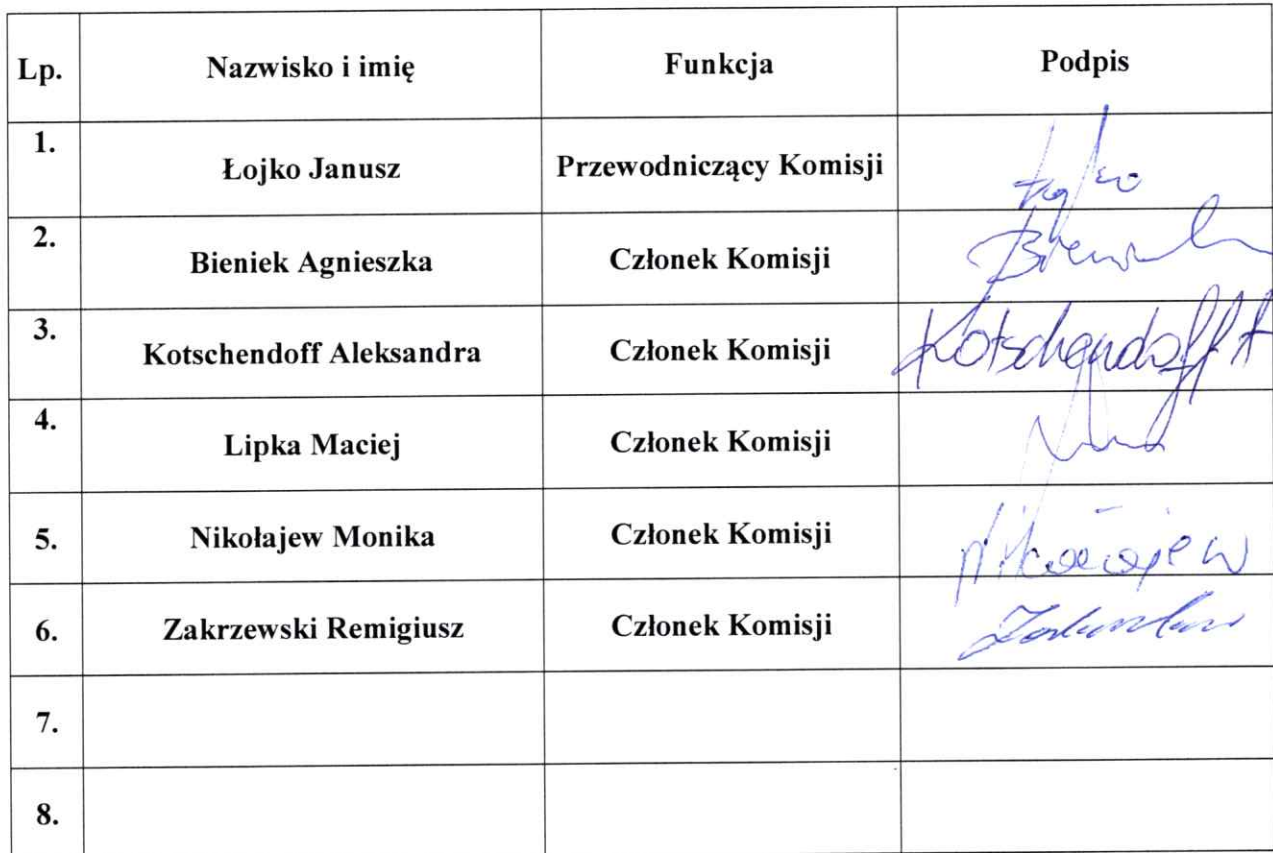 Lp. Nazwisko i imię Funkcja Podpis
1. Łojko Janusz Przewodniczący Komisji
2. Bieniek Agnieszka Członek Komisji
3. Kotschendoff Aleksandra Członek Komisji Kotschendoff A
4. Lipka Maciej Członek Komisji
5. Nikołajew Monika Członek Komisji Nikołajew
6. Zakrzewski Remigiusz Członek Komisji
7.
8.